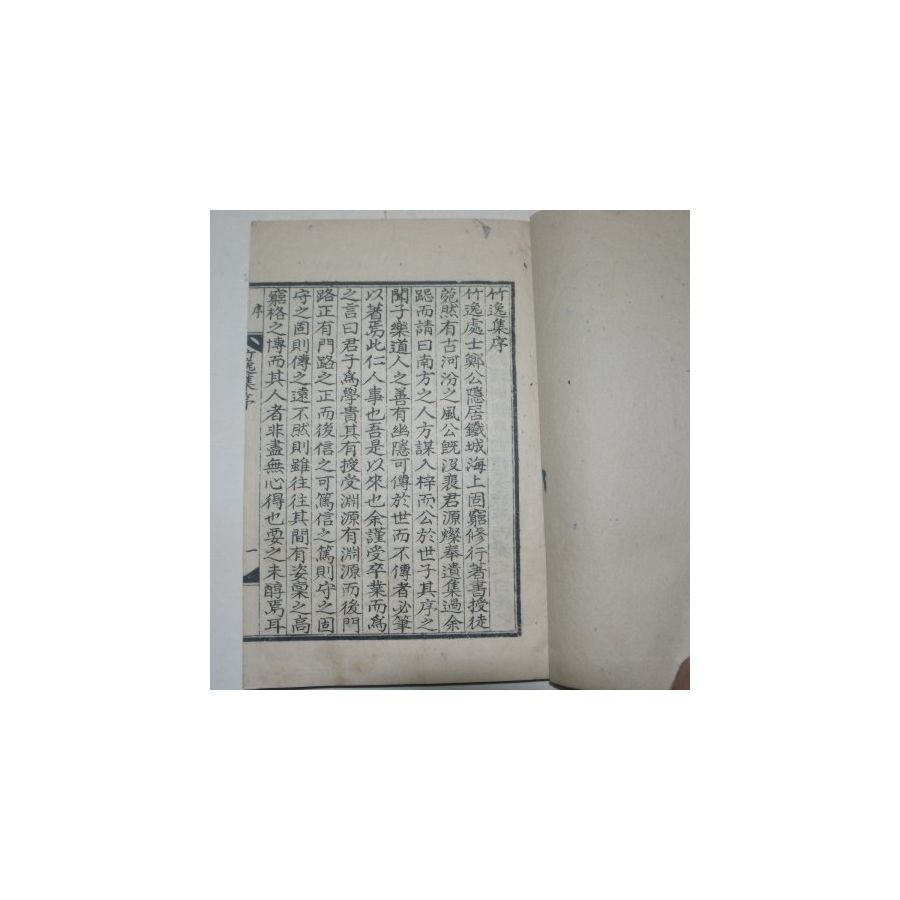 竹逸集序
竹逸處士鄭公隱居鐵城海上固窮修行著書授徒
菀然有古河汾之風公旣沒裵君源燦奉遺集過余
跽而請曰南方之人方謀入梓而公於世子其序之
聞子樂道人之善有幽隱可傳於世而不傳者必筆
以著焉此仁人事也吾是以來也余謹受卒業而爲
之言曰君子爲學貴其有授受淵源有淵源而後門
路正有門路之正而後信之可篤信之篤則守之固
守之固則傳之遠不然則雖往往其間有姿稟之高
窮格之博而其人者非盡無心得也要之未醇焉耳
竹逸集序
序
一